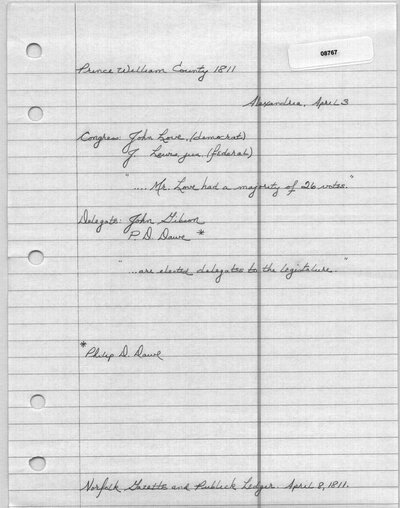 08767
Prince William County 1811
Alexandria, April 3
Congress: John Love (democrat)
J. Lewis, jun. (federal)
".... Mr. Love had a majority of 26 votes."
Delegate: John Gibson
P. D. Dawe *
"...are elected delegates to the legislature."
*Philip D. Dawe
Norfolk Gazette and Publick Ledger. April 8, 1811.